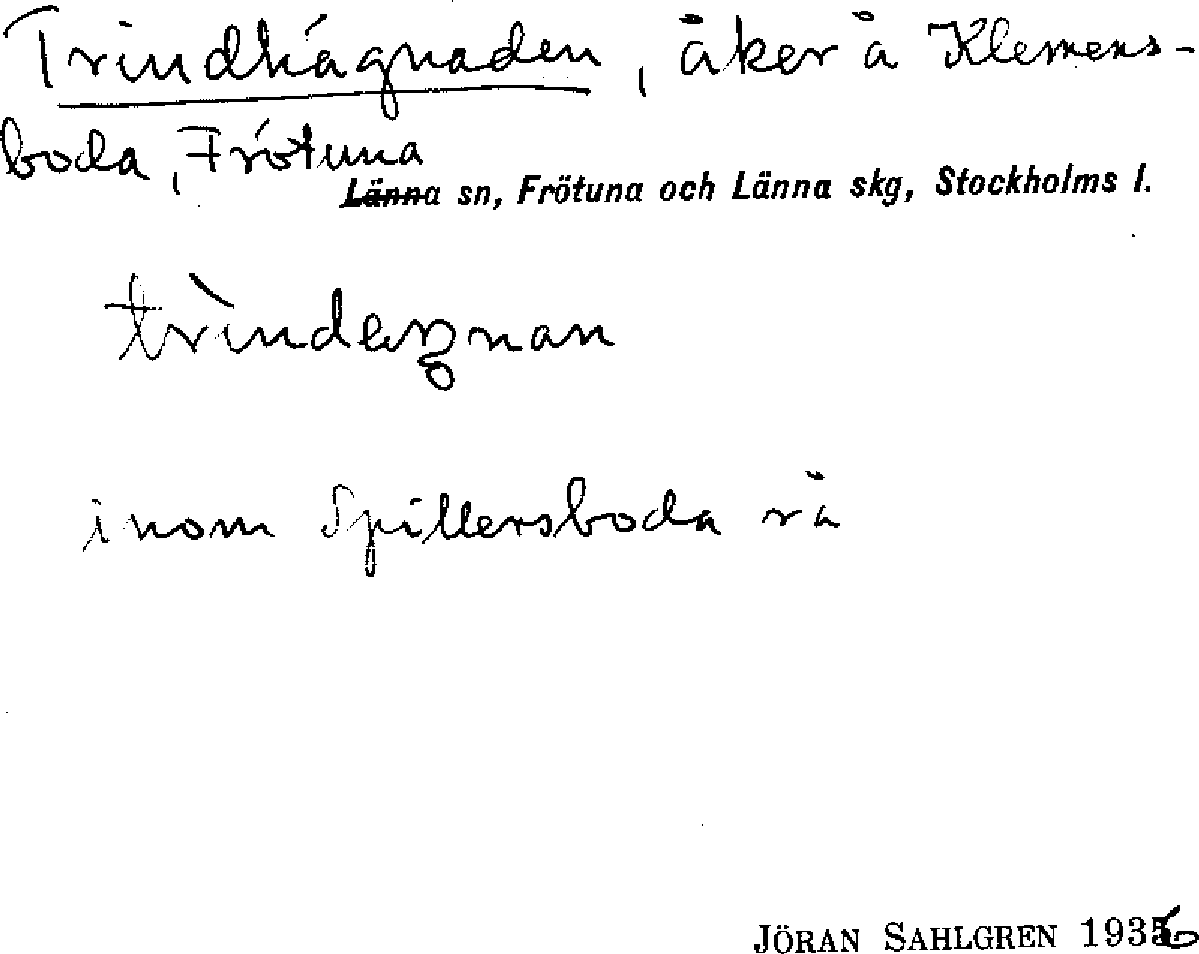 Trindhägnaden, åker å Klemens-
boda, Frötuna
Länna sn, Frötuna och Länna skg, Stockholms l.
inom Spillersboda rå
JÖRAN SAHLGREN 1936